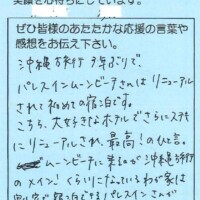 笑顔を心待ちにしています。
ぜひ皆様のあたたかな応援の言葉や
感想をお伝え下さい。
沖縄旅行 9年ぶりで、
パレスインムーンビーチさんは リニューアル
されて初めての宿泊です。
こちら、大好きなホテルでさらにステキ
にリニューアルされ、最高!の伝言。
ムーンビーチに来るのが沖縄旅行
のメイン! くらいになっているわが家は
パレスインさんが